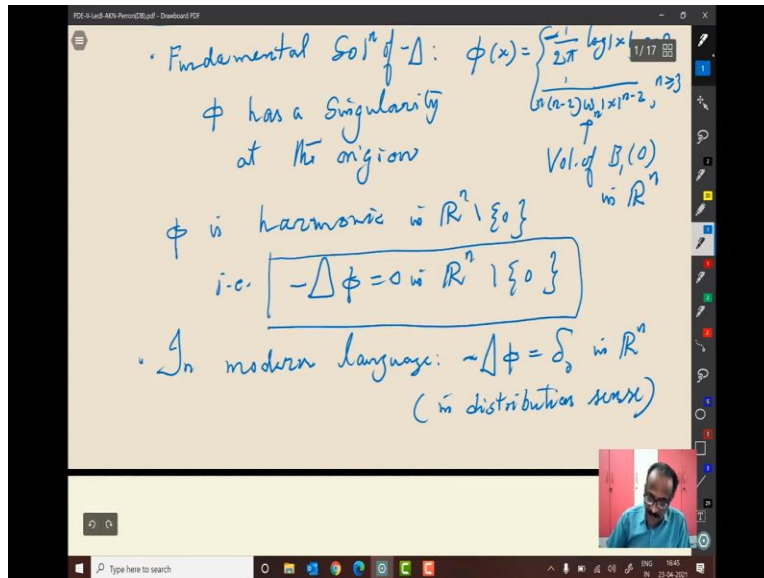 PDE-II-Lec8-AKN-Perron(DBL).pdf - Drawboard PDF
1/17
· Fundamental Solⁿ of -Δ: ϕ(x) = { -1/2π log|x|
1/n(n-2)ωₙ|x|ⁿ⁻², n≥3
ϕ has a Singularity
at the origion
↑
Vol. of B₁(0)
in ℝⁿ
ϕ is harmonic in ℝⁿ \ {0}
i.e. -Δϕ = 0 in ℝⁿ \ {0}
· In modern language: -Δϕ = δ₀ in ℝⁿ
(in distribution sense)
Type here to search
ENG
IN
16:45
23-04-2021